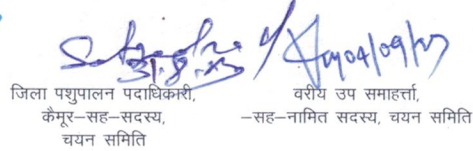 31.8.23
04/09/23
जिला पशुपालन पदाधिकारी,
कैमूर–सह–सदस्य,
चयन समिति
वरीय उप समाहर्त्ता,
–सह–नामित सदस्य, चयन समिति